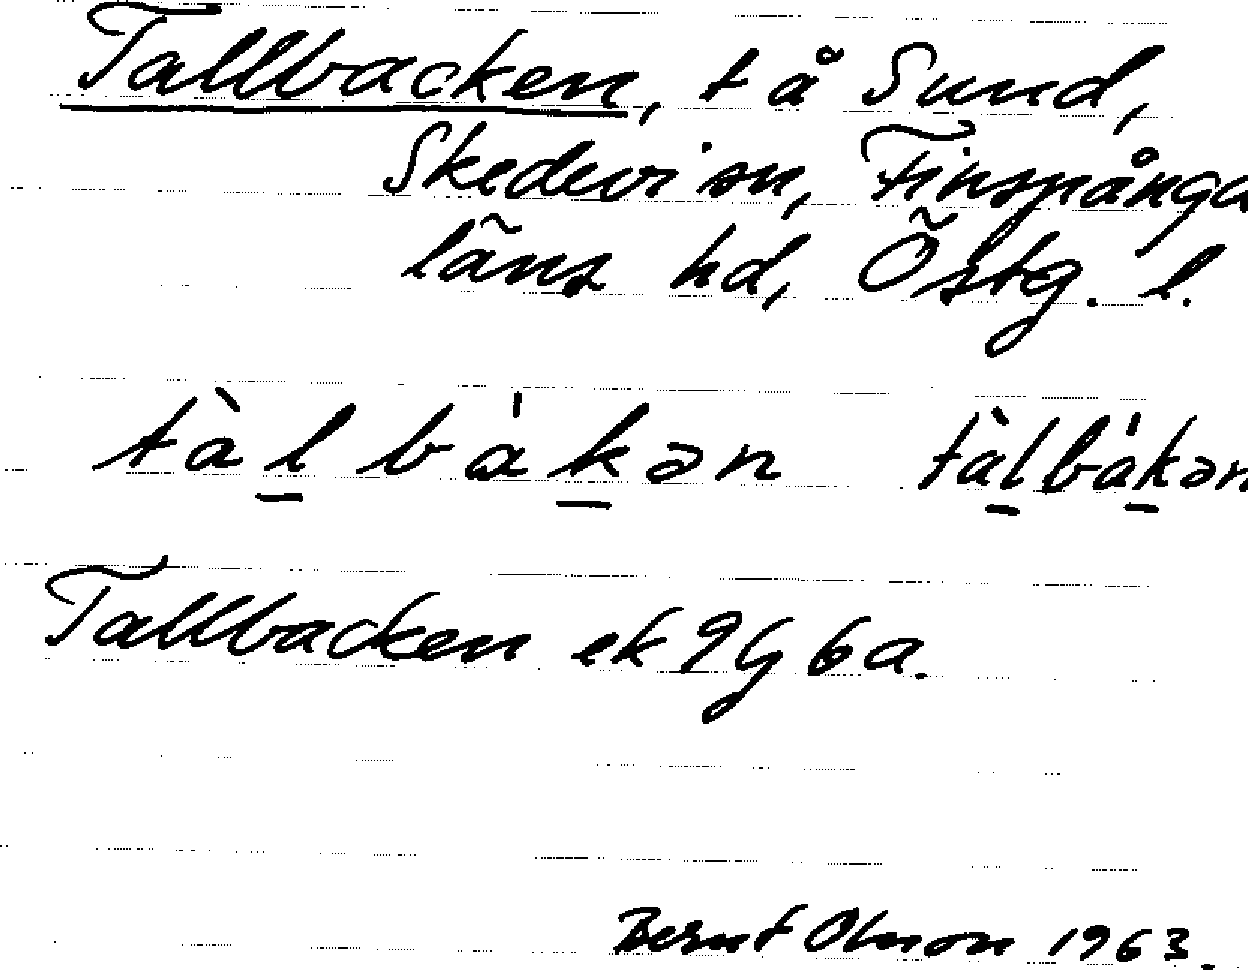 Tallbacken, t å Sund,
Skedevi sn, Finspånga
läns hd, Östg. l.
tàl̲bàk̲ən tàl̲bàk̲ən
Tallbacken ek 9G 6a.
Bernt Olson 1963.